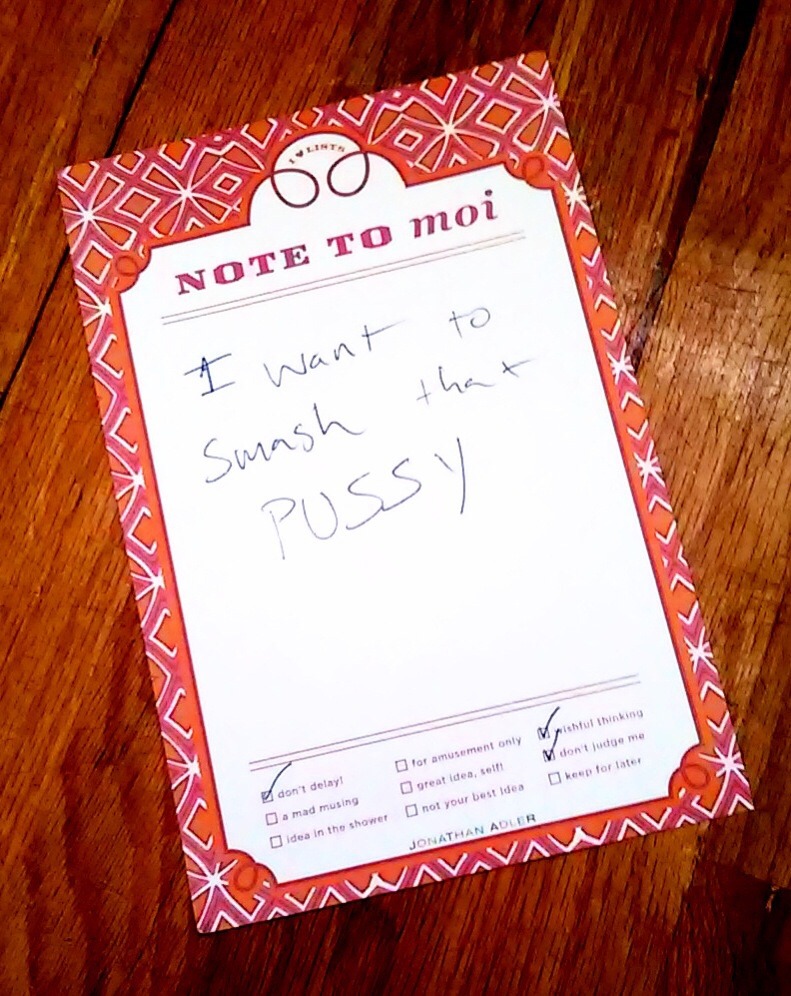 I ♥ LISTS
NOTE TO moi
I want to
smash that
PUSSY
don't delay!
a mad musing
idea in the shower
for amusement only
great idea, self!
not your best idea
wishful thinking
don't judge me
keep for later
JONATHAN ADLER